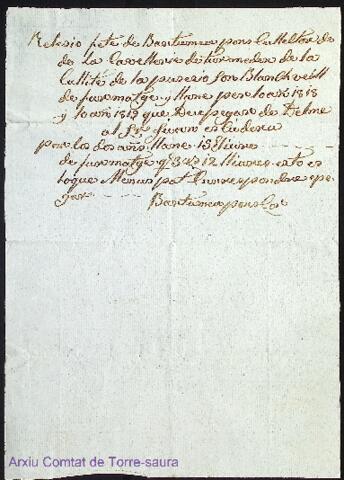 Relasio fete de Bartumeu pons Cultultor de
de la Cavelleria de tormeden de la
Cullité de la pursio son Blanch vell
de furmatge y llane per lo añ 1818
y lo añ 1819 que deu pegar de Delme
a Sr Juan
per los dos añs llane 15 lliures
de furmatge qs 3 12 lliures esto es
loque Menus pot Currespondre pe
gar Bartumeu pons
Arxiu Comtat de Torre-saura